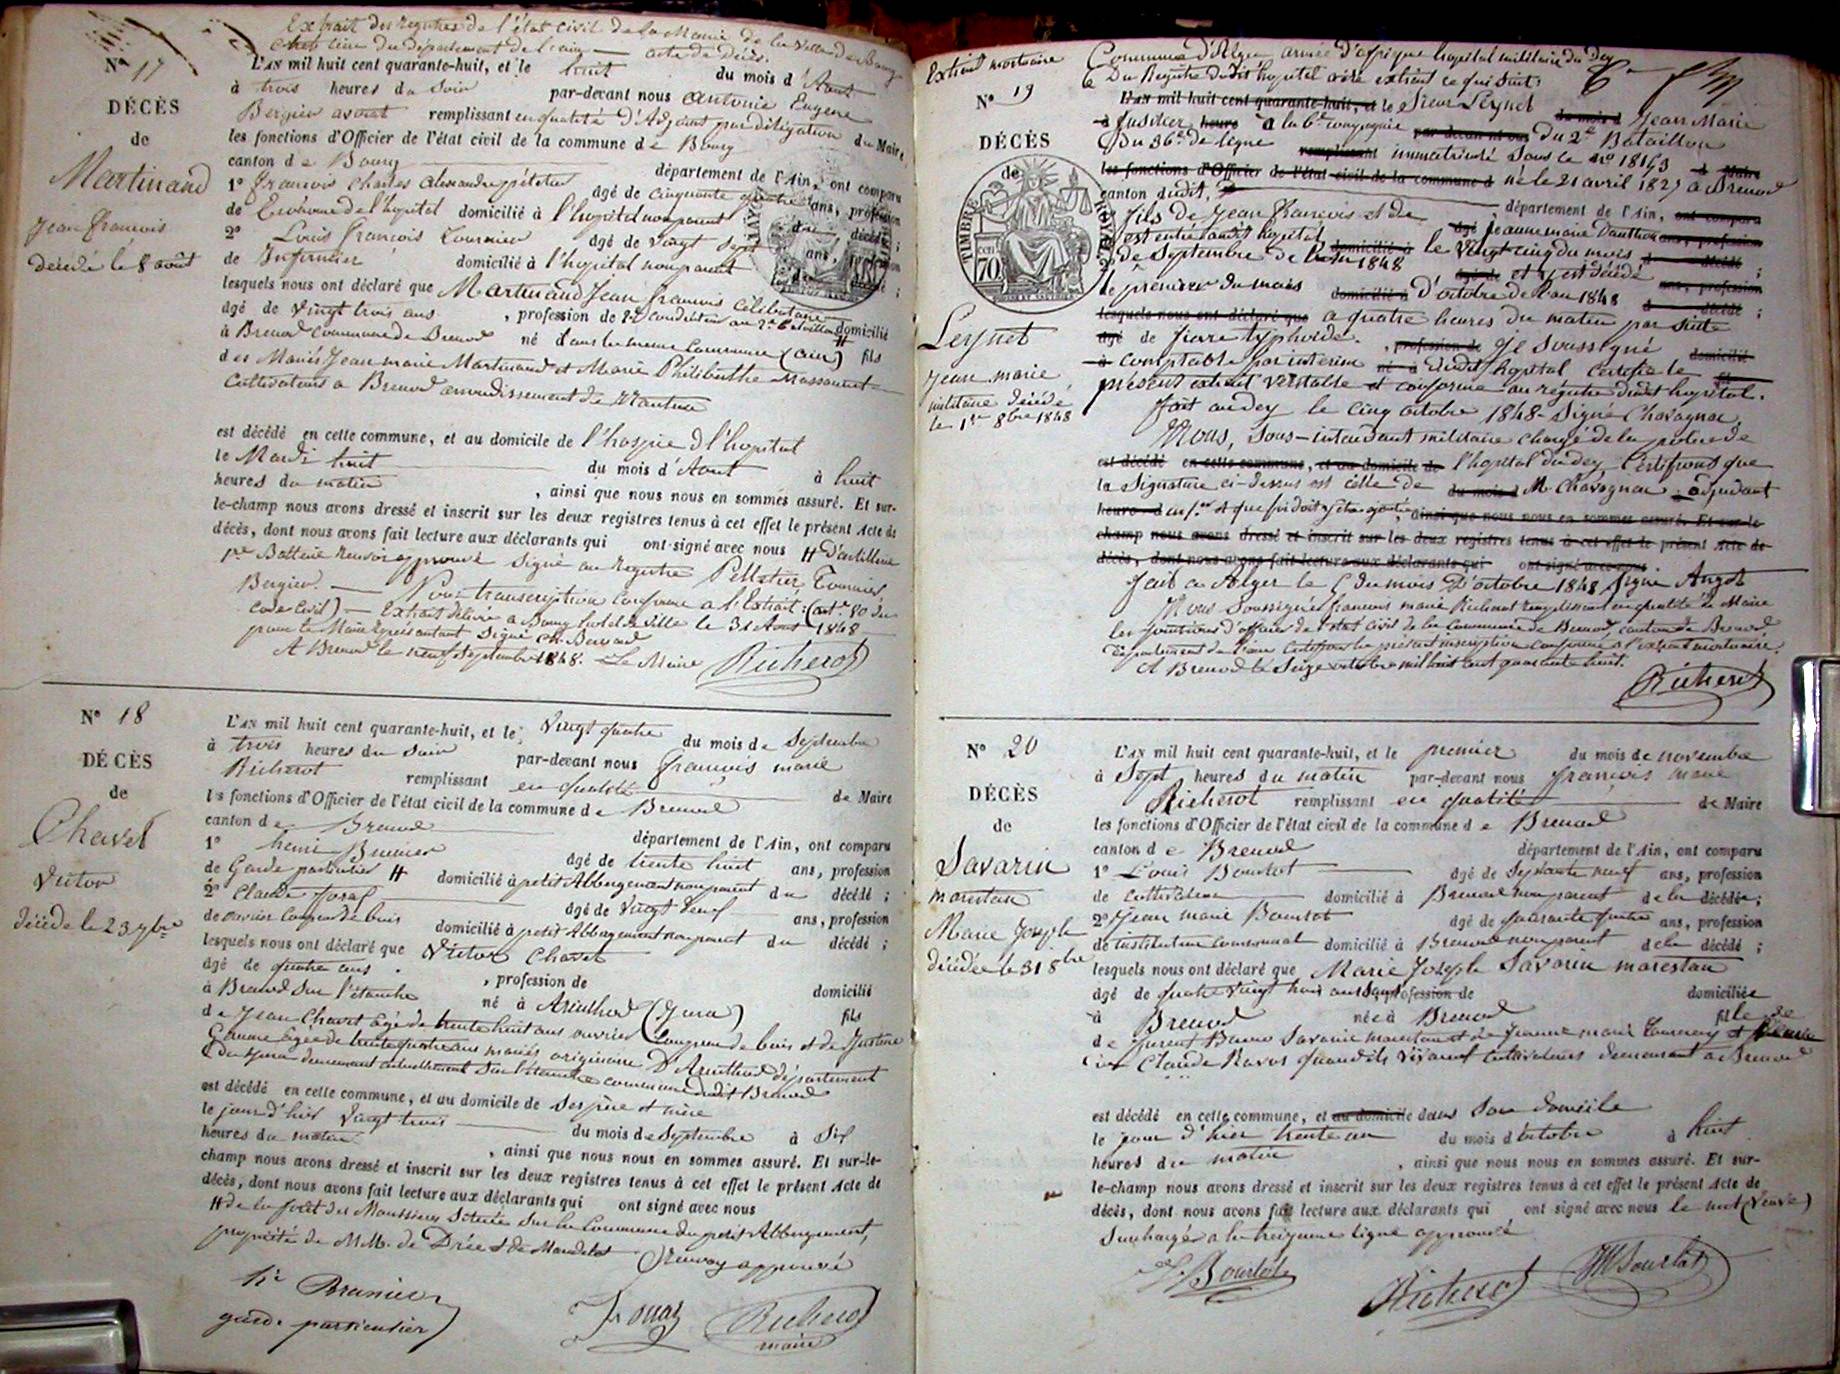 Extrait des registres de l'état civil de la Mairie de la ville de Bourg
chef lieu du département de l'ain — acte de Décès.
Nº 17
DÉCÈS
de
Martinand
Jean françois
décédé le 8 août
L'AN mil huit cent quarante-huit, et le huit du mois d'Aout
à trois heures du soir par-devant nous Antonin Eugene
Bergier avocat remplissant en qualité d'Adjoint par délégation du Maire
les fonctions d'Officier de l'état civil de la commune de Bourg
canton de Bourg département de l'Ain, ont comparu
1º françois Charles Alexandre pelletier agé de cinquante quatre ans, profession
de Econome de l'hopital domicilié à l'hopital non parent du décédé ;
2º Louis françois Tournier agé de vingt sept ans, profession
de Infirmier domicilié à l'hopital non parent du décédé ;
lesquels nous ont déclaré que Martinand Jean françois célibataire
agé de vingt trois ans , profession de 2e conducteur au 2e Bataillon domicilié
à Brenod commune de Brenod né dans la meme commune (ain) fils
des Mariés Jean marie Martinand et Marie Philiberthe Massonnet
cultivateurs a Brenod arrondissement de Nantua
est décédé en cette commune, et au domicile de l'hospice d l'hopital
le Mardi huit du mois d'Aout à huit
heures du matin , ainsi que nous nous en sommes assuré. Et sur-
le-champ nous avons dressé et inscrit sur les deux registres tenus à cet effet le présent Acte de
décès, dont nous avons fait lecture aux déclarants qui ont signé avec nous # d'artillerie
1re Batterie Renvoi approuvé signé au registre Pelletier Tournier
Bergier. — Pour transcription conforme a l'Extrait : (art. 80 du
code civil) — Extrait délivré a Bourg hotel de ville le 31 Aout 1848
pour le Maire signé Ch. Bernard
A Brenod le neuf septembre 1848. Le Maire Richerot
Nº 18
DÉCÈS
de
Chavet
Victor
décédé le 23 7bre
L'AN mil huit cent quarante-huit, et le vingt quatre du mois de Septembre
à trois heures du soir par-devant nous françois marie
Richerot remplissant en qualité de Maire
les fonctions d'Officier de l'état civil de la commune de Brenod
canton de Brenod département de l'Ain, ont comparu
1º henri Brunier agé de trente huit ans, profession
de Garde particulier # domicilié à petit Abbergement non parent du décédé ;
2º Claude agé de vingt neuf ans, profession
de ouvrier de buis domicilié à petit Abbergement non parent du décédé ;
lesquels nous ont déclaré que Victor Chavet
agé de quatre ans , profession de domicilié
à Brenod sur l'étanche né à Arinthod (Jura) fils
de Jean Chavet âgé de trente huit ans ouvrier de buis et de Justine
âgée de trente quatre ans mariés originaires D'Arinthod département
du Jura demeurant actuellement sur l'étanche commune dudit Brenod
est décédé en cette commune, et au domicile de ses père et mère
le jour d'hier vingt trois du mois de Septembre à Six
heures du matin , ainsi que nous nous en sommes assuré. Et sur-le-
champ nous avons dressé et inscrit sur les deux registres tenus à cet effet le présent Acte de
décès, dont nous avons fait lecture aux déclarants qui ont signé avec nous
# de la forêt des Moussières située sur la commune du petit Abbergement,
propriété de MM. de Drée & de Mandelot Renvoy approuvé
hri Brunier
garde particulier
Richerot
maire
Extrait mortuaire
Commune d'Alger armée d'affrique hopital militaire du Dey
Du Registre dudit hopital a été extrait ce qui suit
Nº 19
DÉCÈS
de
TIMBRE ROYAL
70
Leynet
Jean marie
militaire décédé
le 1er 8bre 1848
L'AN mil huit cent quarante-huit, et le Sieur Leynet du mois d Jean Marie
à fusilier heure à la 6e compagnie par-devant nous du 2e Bataillon
Du 36e de ligne remplissant immatriculé sous le nº 18143 d Maire
les fonctions d'Officier de l'état civil de la commune d né le 21 avril 1827 à Brenod
canton dudit, département de l'Ain, ont comparu
fils de Jean françois et de agé Jeanne marie ans, profession
est entré audit hopital domicilié à le vingt cinq du mois d décédé ;
2º de Septembre de l'an 1848 agé de et y est décédé ans, profession
le premier du mois domicilié à d'octobre de l'an 1848 d décédé ;
lesquels nous ont déclaré que a quatre heures du matin par suite
agé de fievre typhoïde. , profession de Je soussigné domicilié
à comptable par interim né à dudit hopital certifie le
présent extrait véritable et conforme au régistre dudit hopital.
fait au dey le cinq octobre 1848. Signé Chavagnac
Nous, Sous-intendant militaire chargé de la police de
est décédé en cette commune, et au domicile de l'hopital du dey certifions que
la signature ci-dessus est celle de du mois d M. Chavagnac adjudant
heure d et que foi doit y être ajoutée, ainsi que nous nous en sommes assuré. Et sur-le-
champ nous avons dressé et inscrit sur les deux registres tenus à cet effet le présent Acte de
décès, dont nous avons fait lecture aux déclarants qui ont signé avec nous
fait a Alger le 5 du mois d'octobre 1848 Signé Angot
Nous soussigné françois marie Richerot remplissant en qualité de Maire
les fonctions d'officier de l'état civil de la commune de Brenod canton de Brenod
département de l'ain certifions la présente inscription conforme a l'extrait mortuaire.
A Brenod le Seize octobre mil huit cent quarante huit.
Richerot
Nº 20
DÉCÈS
de
Savarin
marestan
Marie Joseph
décédée le 31 8bre
L'AN mil huit cent quarante-huit, et le premier du mois de novembre
à Sept heures du matin par-devant nous françois marie
Richerot remplissant en qualité de Maire
les fonctions d'Officier de l'état civil de la commune de Brenod
canton de Brenod département de l'Ain, ont comparu
1º Louis Bourlot agé de Septante neuf ans, profession
de cultivateur domicilié à Brenod non parent de la décédée ;
2º Jean marie Bourlot agé de quarante quatre ans, profession
de instituteur communal domicilié à Brenod non parent de la décédé ;
lesquels nous ont déclaré que Marie Joseph Savarin marestan
agé de quatre vingt trois ans sans profession de domiciliée
à Brenod née à Brenod fille de
de Savarin marestan et de Jeanne marie Tournery et veuve
Claude Ravos quand ils vivaient cultivateurs demeurant a Brenod
est décédé en cette commune, et au domicile dans son domicile
le jour d'hier trente un du mois d'octobre à huit
heures du matin , ainsi que nous nous en sommes assuré. Et sur-
le-champ nous avons dressé et inscrit sur les deux registres tenus à cet effet le présent Acte de
décès, dont nous avons fait lecture aux déclarants qui ont signé avec nous le mot (veuve)
surchargé a la treizieme ligne approuvé
L. Bourlot
Richerot
JM Bourlot